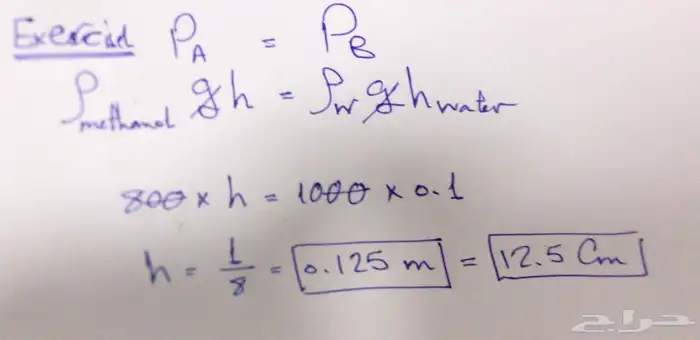 Exercise P_A = P_B
ρ_methanol g h = ρ_w g h_water
800 × h = 1000 × 0.1
h = 1/8 = 0.125 m = 12.5 Cm
حراج